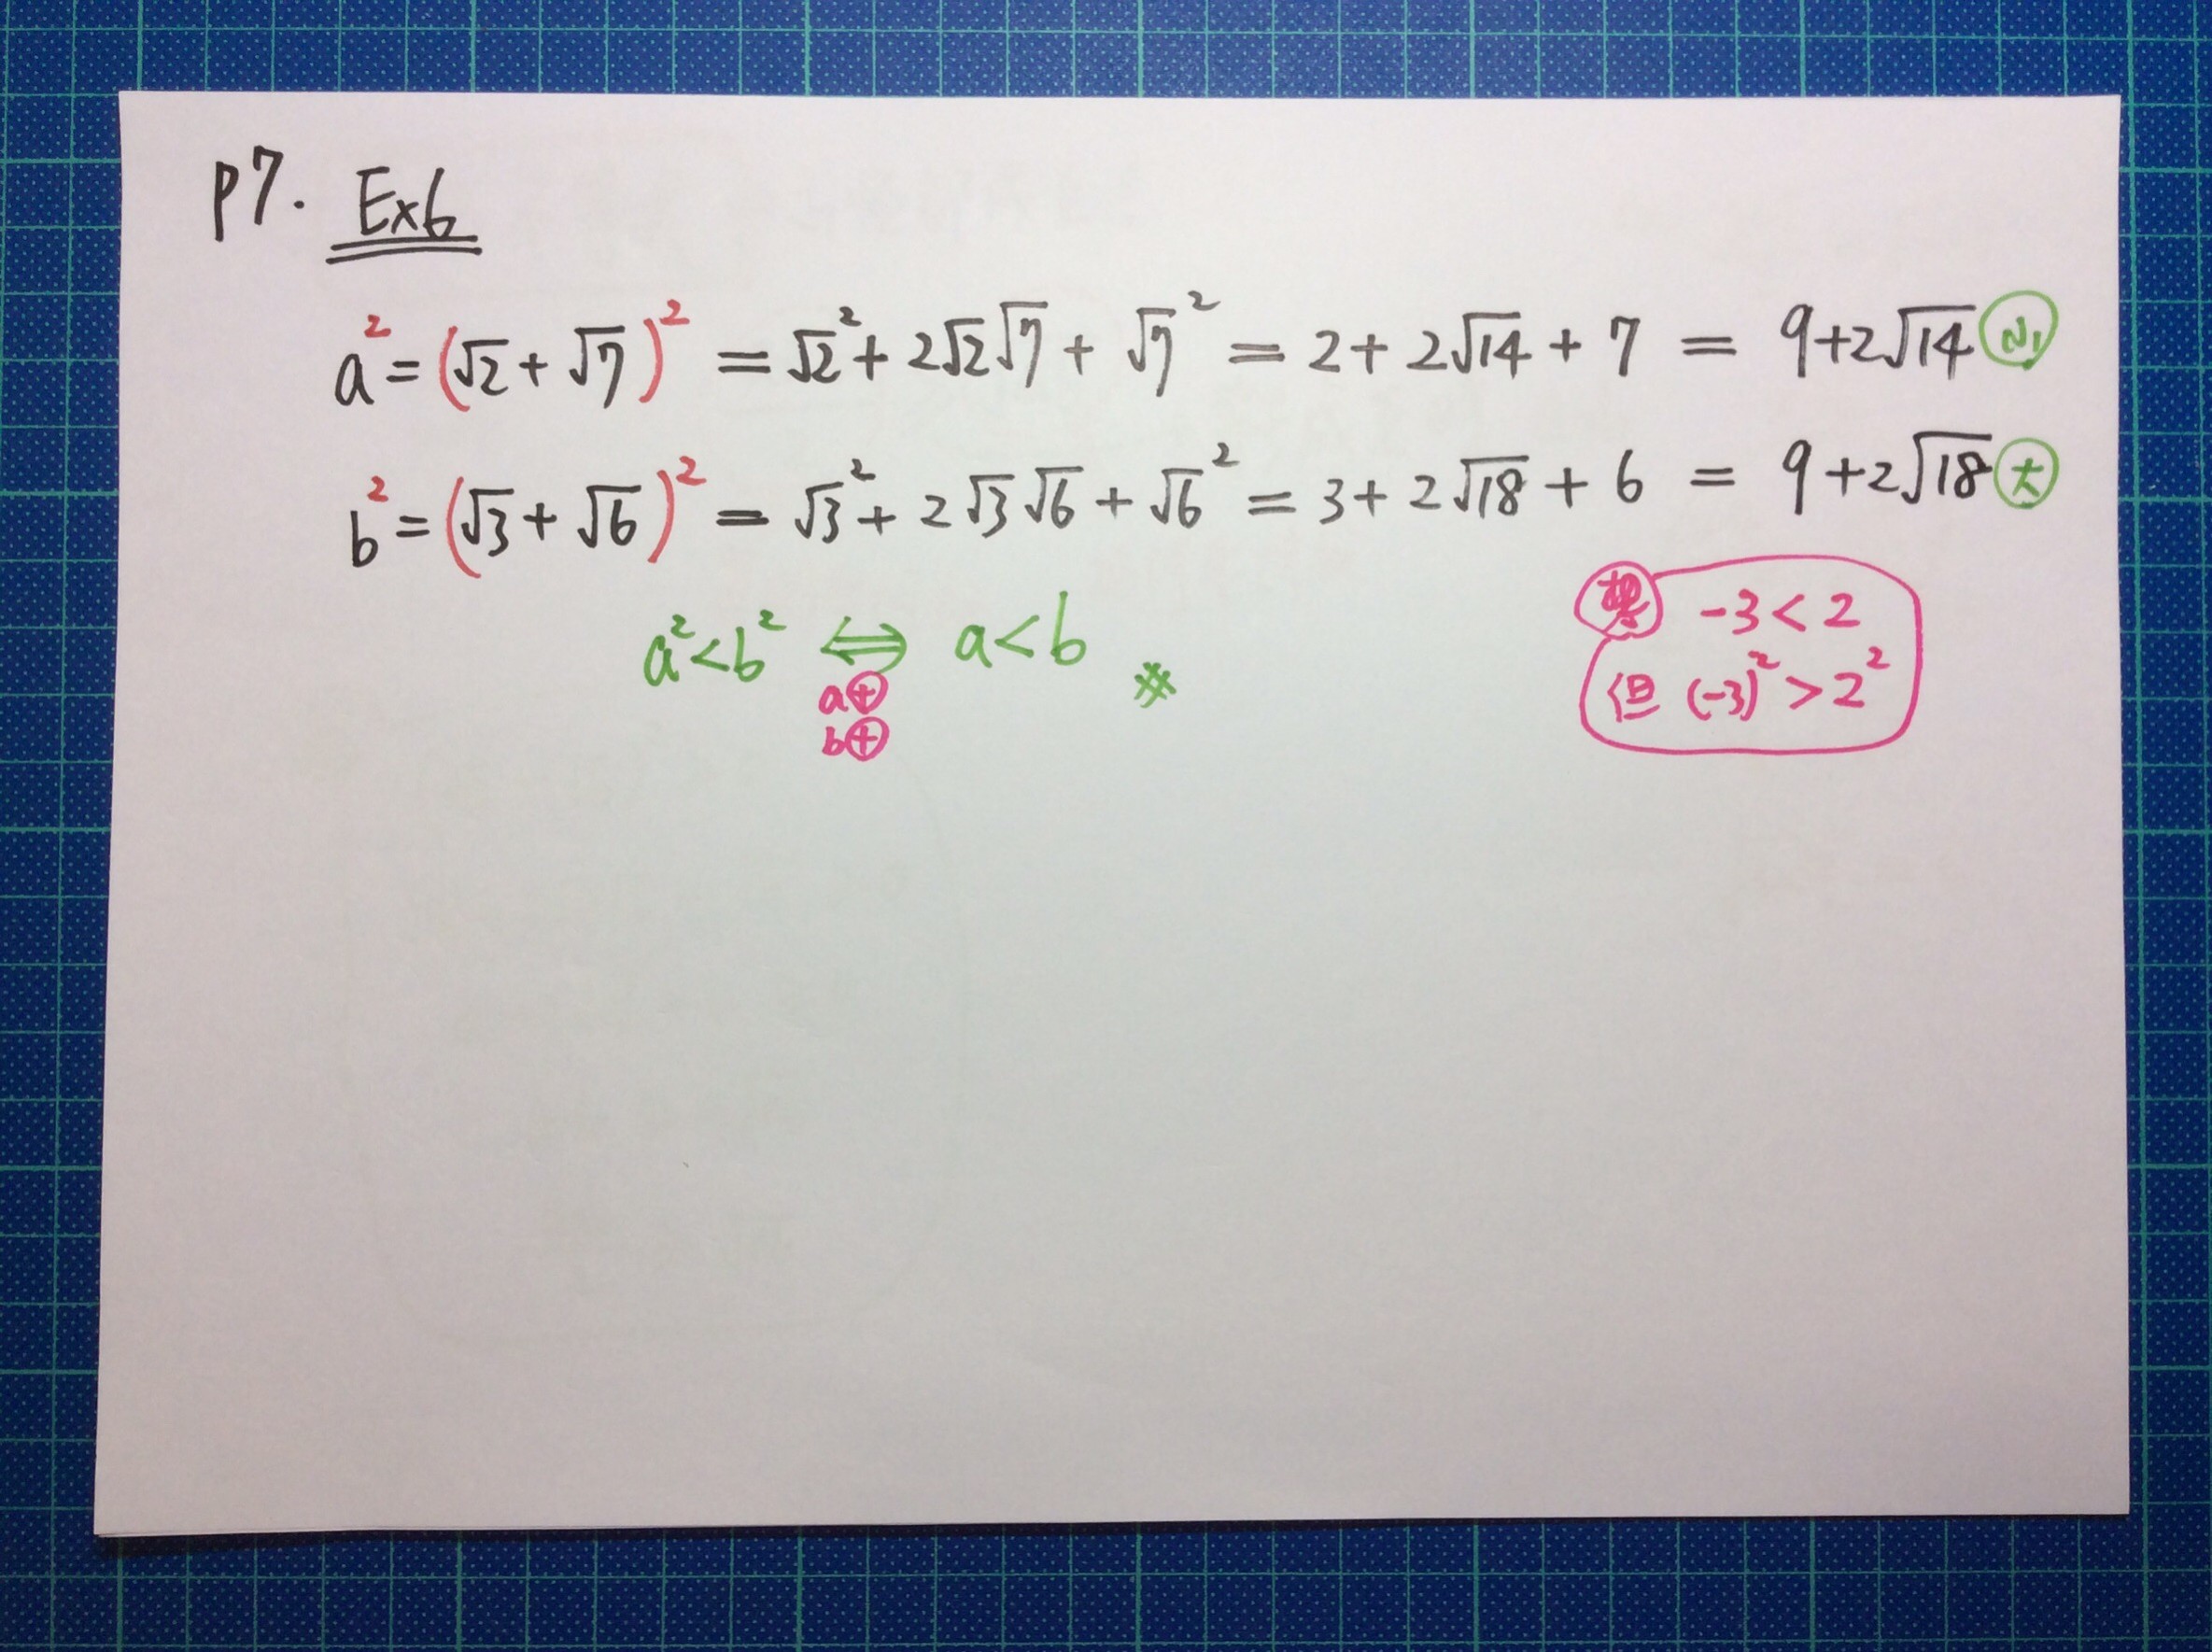 P7. Ex6
a² = (√2 + √7)² = √2² + 2√2√7 + √7² = 2 + 2√14 + 7 = 9+2√14 小
b² = (√3 + √6)² = √3² + 2√3√6 + √6² = 3 + 2√18 + 6 = 9+2√18 大
a² < b² ⟺ a < b ※
a⊕
b⊕
想 -3 < 2
但 (-3)² > 2²